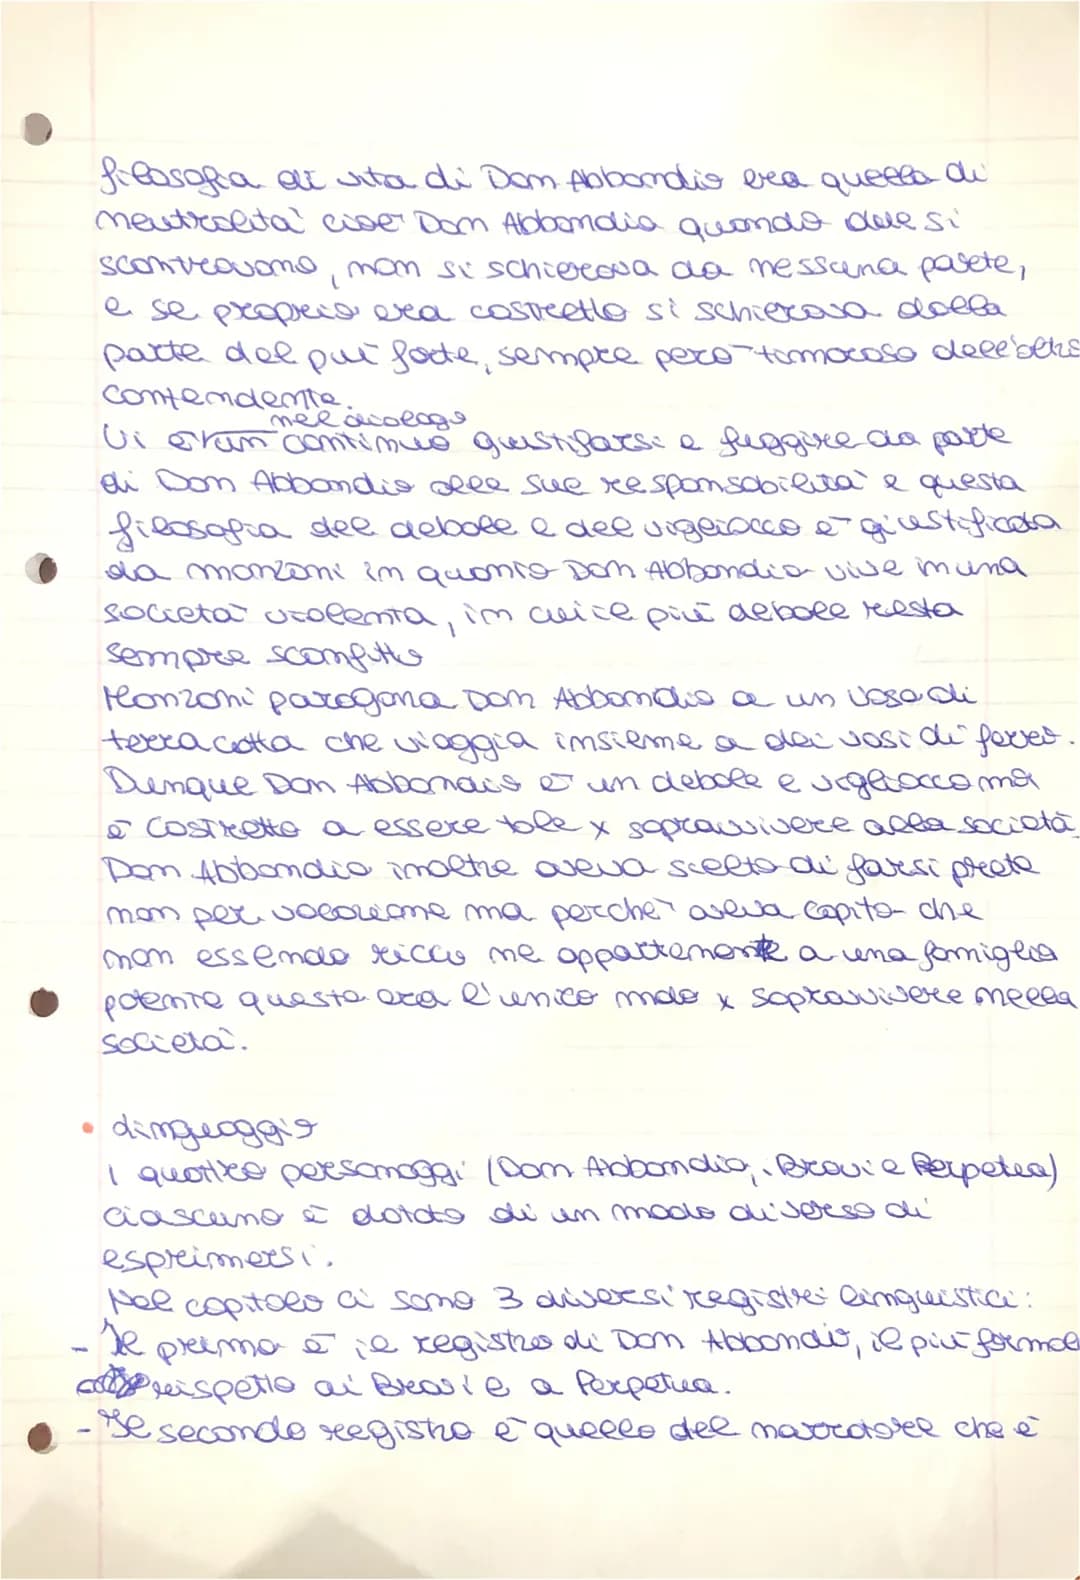 filosofia di vita di Don Abbondio era quella di
neutralità cioè Don Abbondio quando due si
scontravano, non si schierava da nessuna parte,
e se proprio era costretto si schierava dalla
parte del più forte, sempre però timoroso dell'altro
contendente.
nel dialogo
Vi è un continuo giustifarsi e fuggire da parte
di Don Abbondio alle sue responsabilità e questa
filosofia del debole e del vigliacco è giustificata
da manzoni in quanto Don Abbondio vive in una
società violenta, in cui il più debole resta
sempre sconfitto
Manzoni paragona Don Abbondio a un vaso di
terra cotta che viaggia insieme a dei vasi di ferro.
Dunque Don Abbondio è un debole e vigliacco ma
è costretto a essere tale x sopravvivere alla società
Don Abbondio inoltre aveva scelto di farsi prete
non per vocazione ma perché aveva capito che
non essendo ricco ne appartenente a una famiglia
potente questo era l'unico modo x sopravvivere nella
società.
• Linguaggio
I quattro personaggi (Don Abbondio, i Bravi e Perpetua)
ciascuno è dotato di un modo diverso di
esprimersi.
Nel capitolo ci sono 3 diversi registri linguistici:
- Il primo è il registro di Don Abbondio, il più formale
rispetto ai Bravi e a Perpetua.
- Il secondo registro è quello del narratore che è